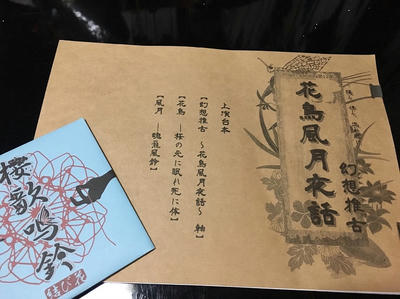 花鳥風月夜話
幻想推古
上演台本
【幻想推古 ～花鳥風月夜話～ 軸】
【花鳥 ―桜の元に眠れ死に体】
【風月 ―魂籠風鈴】
桜歌鳴鈴
結び花